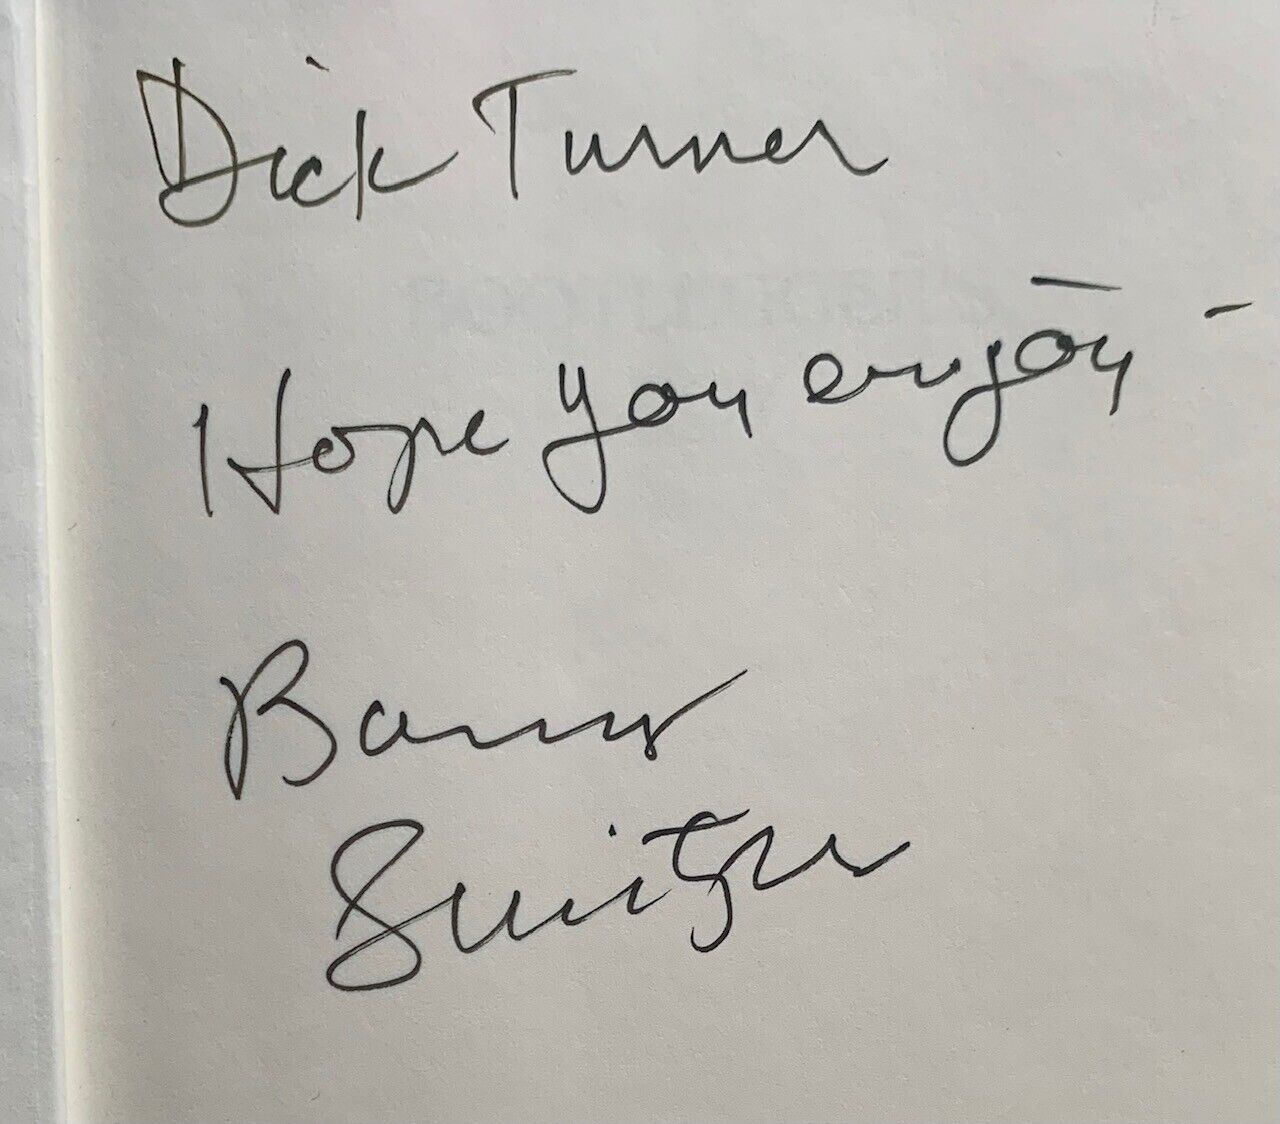 Dick Turner
Hope you enjoy -
Barry
Switzer